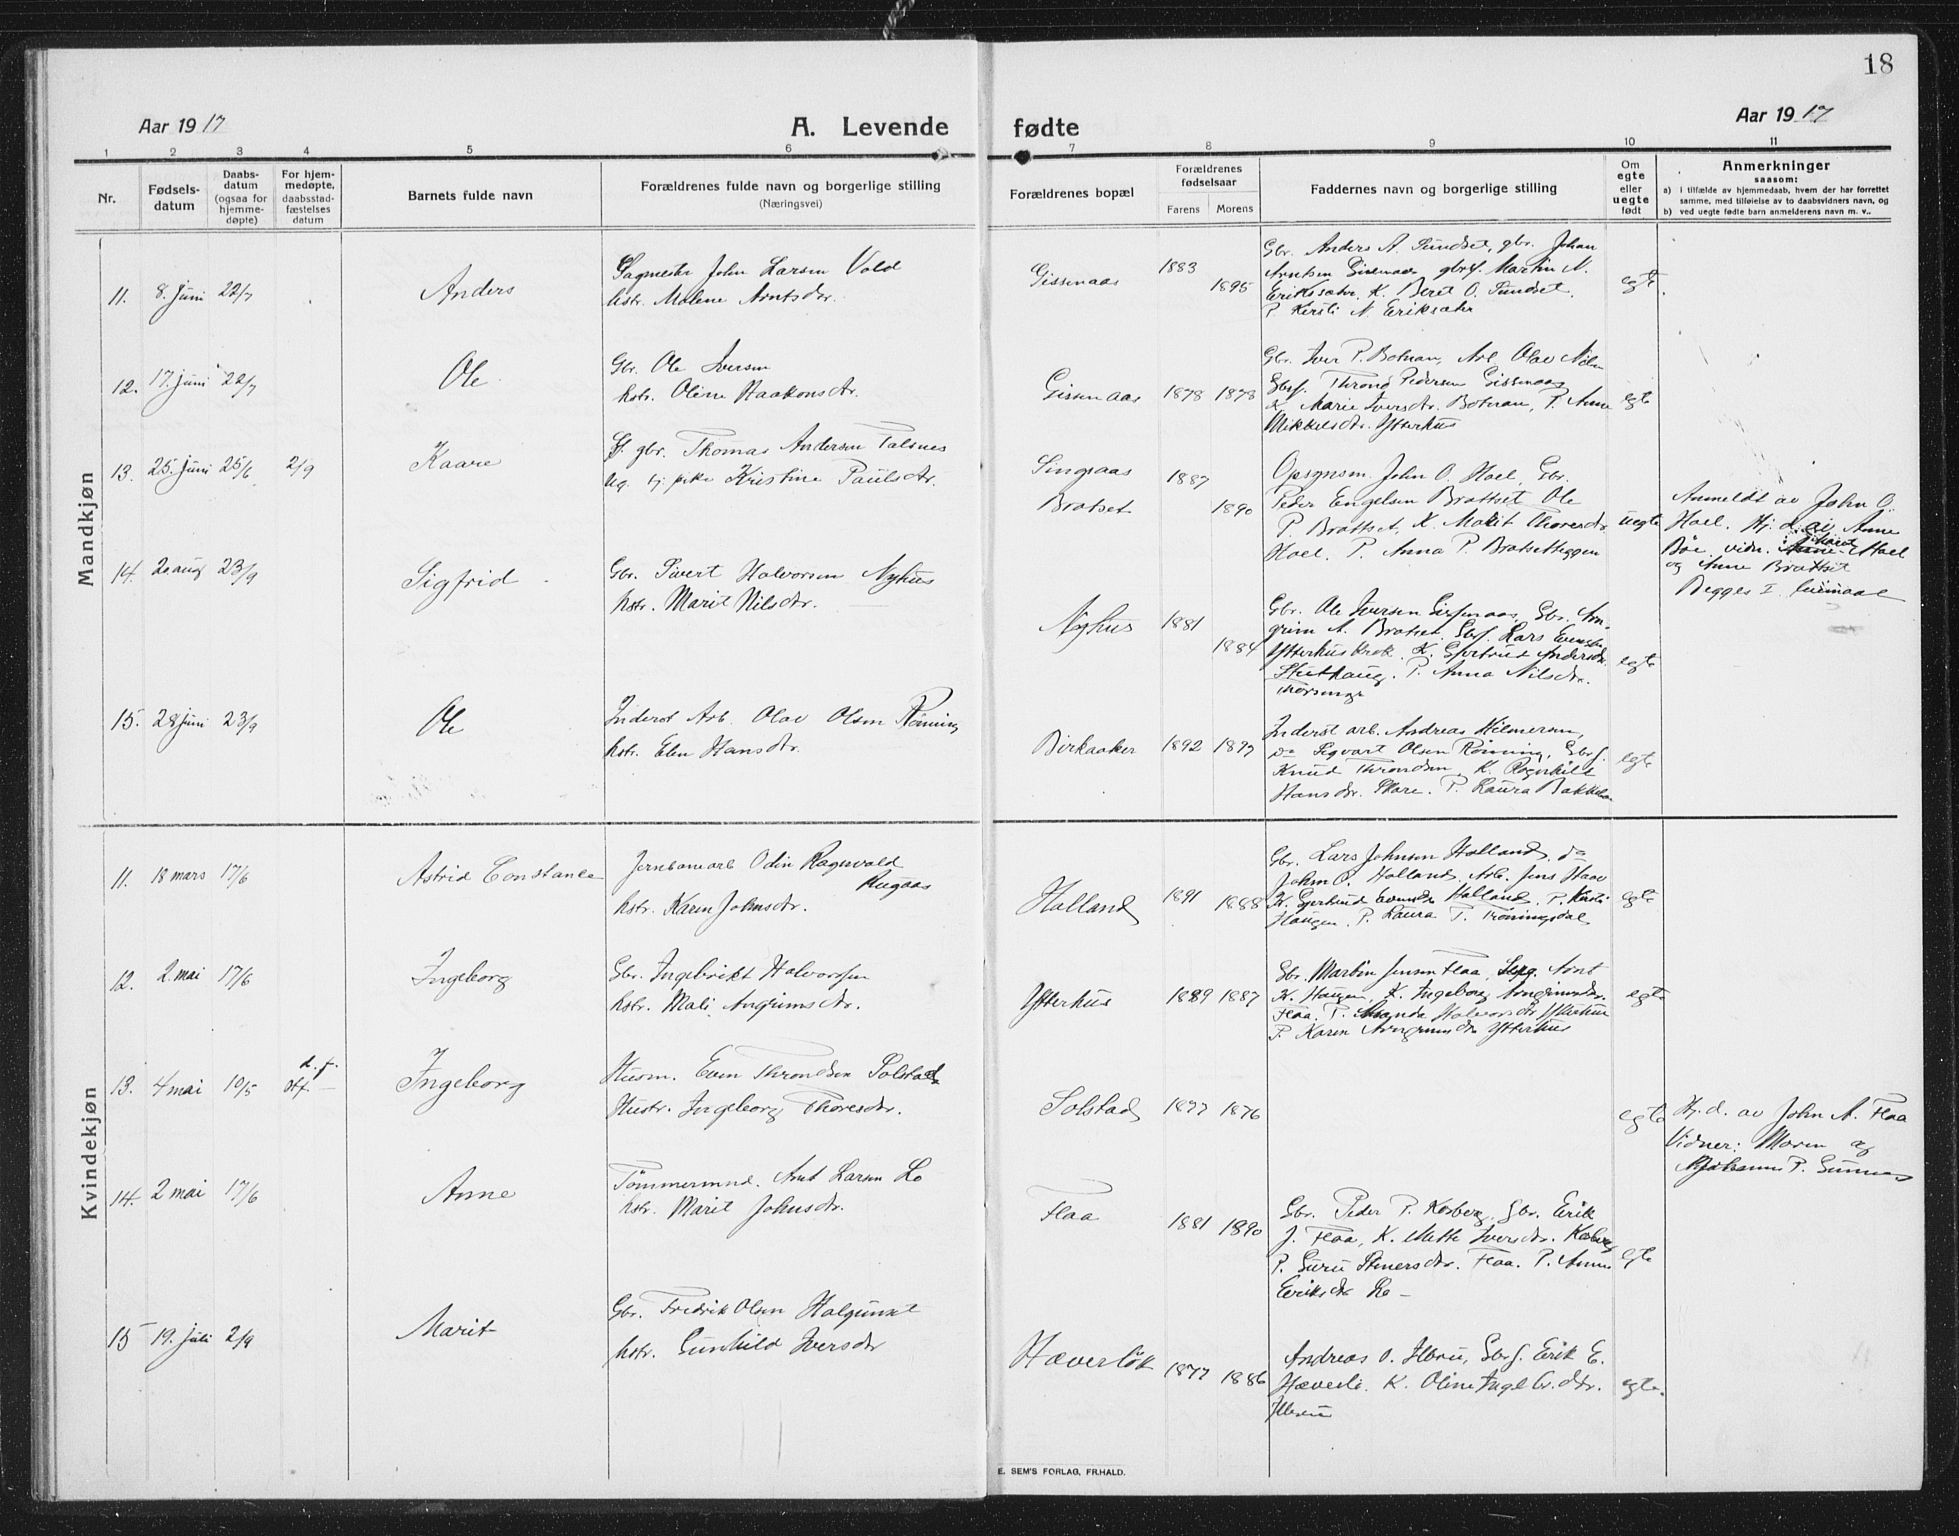 18
Aar 1917
A. Levende
fødte
Aar 1917
1 2 3 4 5 6 7 8 9 10 11
Nr.
Fødsels-
datum
Daabs-
datum
(ogsaa for
hjemme-
døpte)
For hjem-
medøpte,
daabsstad-
fæstelses
datum
Barnets fulde navn
Forældrenes fulde navn og borgerlige stilling
(Næringsvei)
Forældrenes bopæl
Forældrenes
fødselsaar
Farens Morens
Faddernes navn og borgerlige stilling
Om
egte
eller
uegte
født
Anmerkninger
saasom:
a) i tilfælde av hjemmedaab, hvem der har forrettet
samme, med tilføielse av to daabsvidners navn, og
b) ved uegte fødte barn anmelderens navn m. v..
Mandkjøn
11. 8. juni 22/7 Anders
Sagmester John Larsen Vold
hstr. Malene Arntsdr.
Gissenaas 1883 1895
Gbr. Anders A. Sundset, gbr. Johan
Arntsen Gissenaas gbrs. Martin N.
Erikssæhr. K. Beret O. Sundset.
P. Kersti N. Eriksæhr
egte.
12. 17. juni 22/7 Ole
Gbr. Ole Iversen
hstr. Oline Haakonsdr.
Gissenaas 1878 1878
Gbr. Iver P. Botnan, Arb. Olav
Gbrs. Thrond Pedersen Gissenaas
K. Marie Iversdr. Botnan, P. Anne
Mikkelsdr. Ytterhus
egte
13. 25. juni 25/6 2/9 Kaare
gbr. Thomas Andersen Talsnes
ug. tj. pike Kristine Paulsdr.
Singsaas
Bratset
1887 1890
Opsynsm. John O. Hoel, Gbr.
Peder Engelsen Brattset Ole
P. Brattset, K. Marit Thoresdr.
Hoel. P. Anna P. Bratsetteggen
uegte
Anmeldt av John O.
Hoel. Hj. d. av Anne
Böe. vidn. Marit Hoel
og Anne Brattset
Begges I. leiermaal
14. 20 aug 23/9 Sigfrid
Gbr. Sivert Halvorsen Nyhus
hstr. Marit Nilsdr.
Nyhus 1881 1884
Gbr. Ole Iversen Gissenaas, Gbr. Arn-
grim A. Bratset. Gbs. Lars Evensen
Ytterhuskrok. K. Gjertrud Andersdr.
Stuthaug. P. Anna Nilsdr.
egte
15. 28 juni 23/9 Ole
Inderst Arb. Olav Olsen Röining
hstr. Elen Hansdr.
Birkaaker 1892 1897
Inderst arb. Andreas Hilmersen,
do Sigvart Olsen Röining, Gbs.
Knud Throndsen K. Ragnhild
Hansdr. Skare. P. Laura Bakken
egte
Kvindekjøn
11. 18 mars 17/6 Astrid Constance
Jernbanearb Odin Ragnvald
Rugaas
hstr. Karen Johnsdr.
Holland 1891 1888
Gbr. Lars Johnsen Holland, do
John O. Holland. Arb. Jens Haav
K. Gjertrud Holland, P. Kersti
Haugen. P. Laura T. Tröningsdal
egte
12. 2. mai 17/6 Ingeborg
Gbr. Ingebrikt Halvorsen
hstr. Mali Arngrimsdr.
Ytterhus 1889 1887
Gbr. Martin Jensen Flaa, Arnt
K. Haugen, K. Ingeborg Arngrimsdr.
Flaa. P. Halvorsdr Ytterhus
P. Karen Arngrimsdr Ytterhus
egte
13. 4 mai 10/5 d. f. stf. Ingeborg
Husm. Even Throndsen Solstad
Hustr. Ingeborg Thoresdr.
Solstad 1877 1876
egte
Hj. d. av John A. Flaa
Vidner: Maren og
Johannes P.
14. 2 mai 17/6 Anne
Tömmermnd. Arnt Larsen Lo
hstr. Marit Johnsdr.
Flaa 1881 1890
Gbr. Peder P. Korberg, Gbr. Erik
J. Flaa, K. Mette Iversdr. Korberg
P. Guru Stenersdr. Flaa. P. Anne
Eriksdr Lo -
egte
15 19. juli 2/9 Marit
Gbr. Fredrik Olsen Halgunset
hstr. Gunhild Iversdr
Hæverlök 1877 1886
Andreas O. Ilbru, Gbs. Erik E.
Hæverlö. K. Oline Ingebr.dtr.
egte.
E. SEM'S FORLAG, FR.HALD.